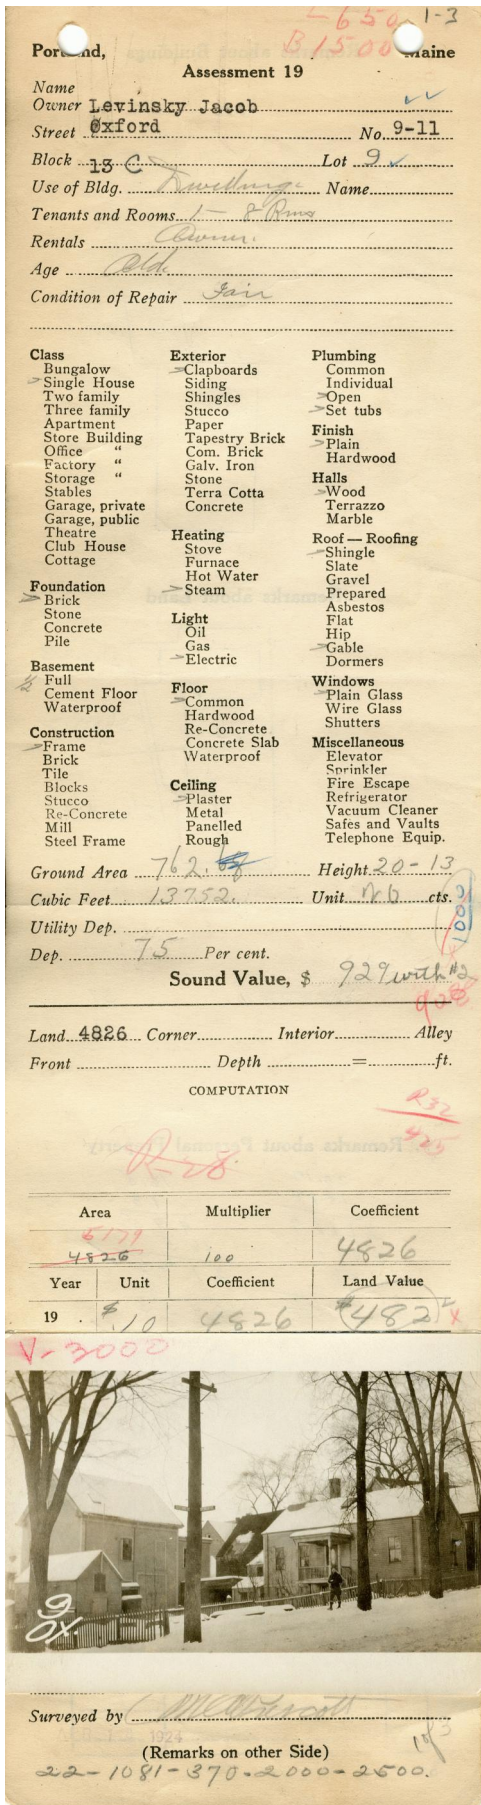 L-650 1-3
B 1500
Portland, Maine
Assessment 19
Name
Owner Levinsky Jacob
Street Oxford No. 9-11
Block 13 C Lot 9
Use of Bldg. Dwelling Name
Tenants and Rooms 1 - 8 Rms
Rentals Owner.
Age Old
Condition of Repair Fair
Class
Bungalow
Single House
Two family
Three family
Apartment
Store Building
Office "
Factory "
Storage "
Stables
Garage, private
Garage, public
Theatre
Club House
Cottage
Foundation
Brick
Stone
Concrete
Pile
Basement
1/2 Full
Cement Floor
Waterproof
Construction
Frame
Brick
Tile
Blocks
Stucco
Re-Concrete
Mill
Steel Frame
Exterior
Clapboards
Siding
Shingles
Stucco
Paper
Tapestry Brick
Com. Brick
Galv. Iron
Stone
Terra Cotta
Concrete
Heating
Stove
Furnace
Hot Water
Steam
Light
Oil
Gas
Electric
Floor
Common
Hardwood
Re-Concrete
Concrete Slab
Waterproof
Ceiling
Plaster
Metal
Panelled
Rough
Plumbing
Common
Individual
Open
Set tubs
Finish
Plain
Hardwood
Halls
Wood
Terrazzo
Marble
Roof — Roofing
Shingle
Slate
Gravel
Prepared
Asbestos
Flat
Hip
Gable
Dormers
Windows
Plain Glass
Wire Glass
Shutters
Miscellaneous
Elevator
Sprinkler
Fire Escape
Refrigerator
Vacuum Cleaner
Safes and Vaults
Telephone Equip.
Ground Area 762. Height 20-13
Cubic Feet 13752. Unit cts.
1000
Utility Dep.
Dep. 75 Per cent.
Sound Value, $ 929 with #2
Land 4826 Corner Interior Alley
Front Depth = ft.
COMPUTATION
R32
425
R-28
Area Multiplier Coefficient
5179
4826 100 4826
Year Unit Coefficient Land Value
19 $.10 4826 $482
V-3000
9
OX.
Surveyed by
1924
1 of 3
(Remarks on other Side)
22-1081-370-2000-2500.